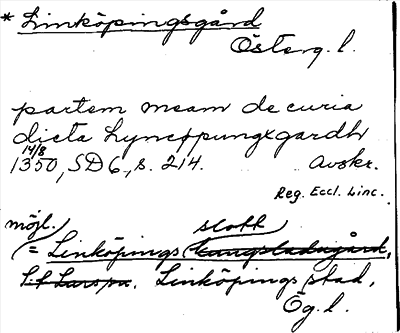 * Linköpingsgård
Österg. l.
partem meam de curia
dicta Lyncøpungxgardh
14/8
1350, SD 6, s. 214. Avskr.
Reg. Eccl. Linc.
möjl. slott
= Linköpings kungsladugård,
S:t Lars sn. Linköpings stad,
Ög. l.